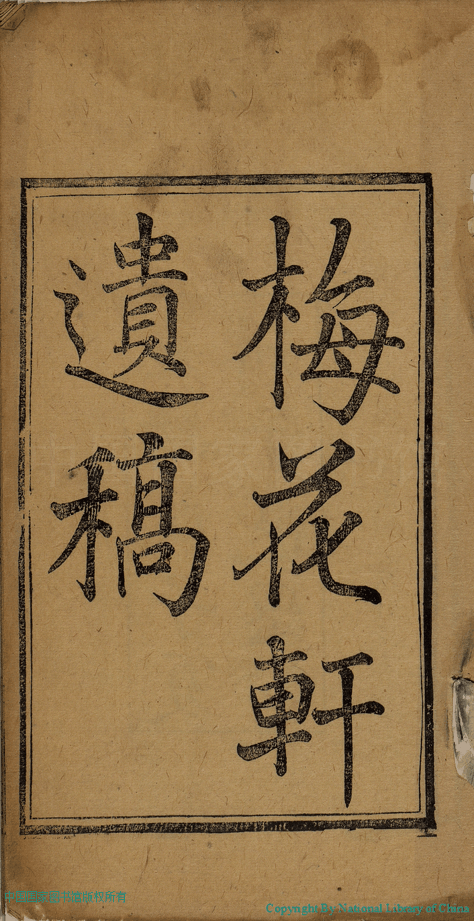 梅花軒
遺稿
国家图书馆版权所有
Copyright By National Library of China